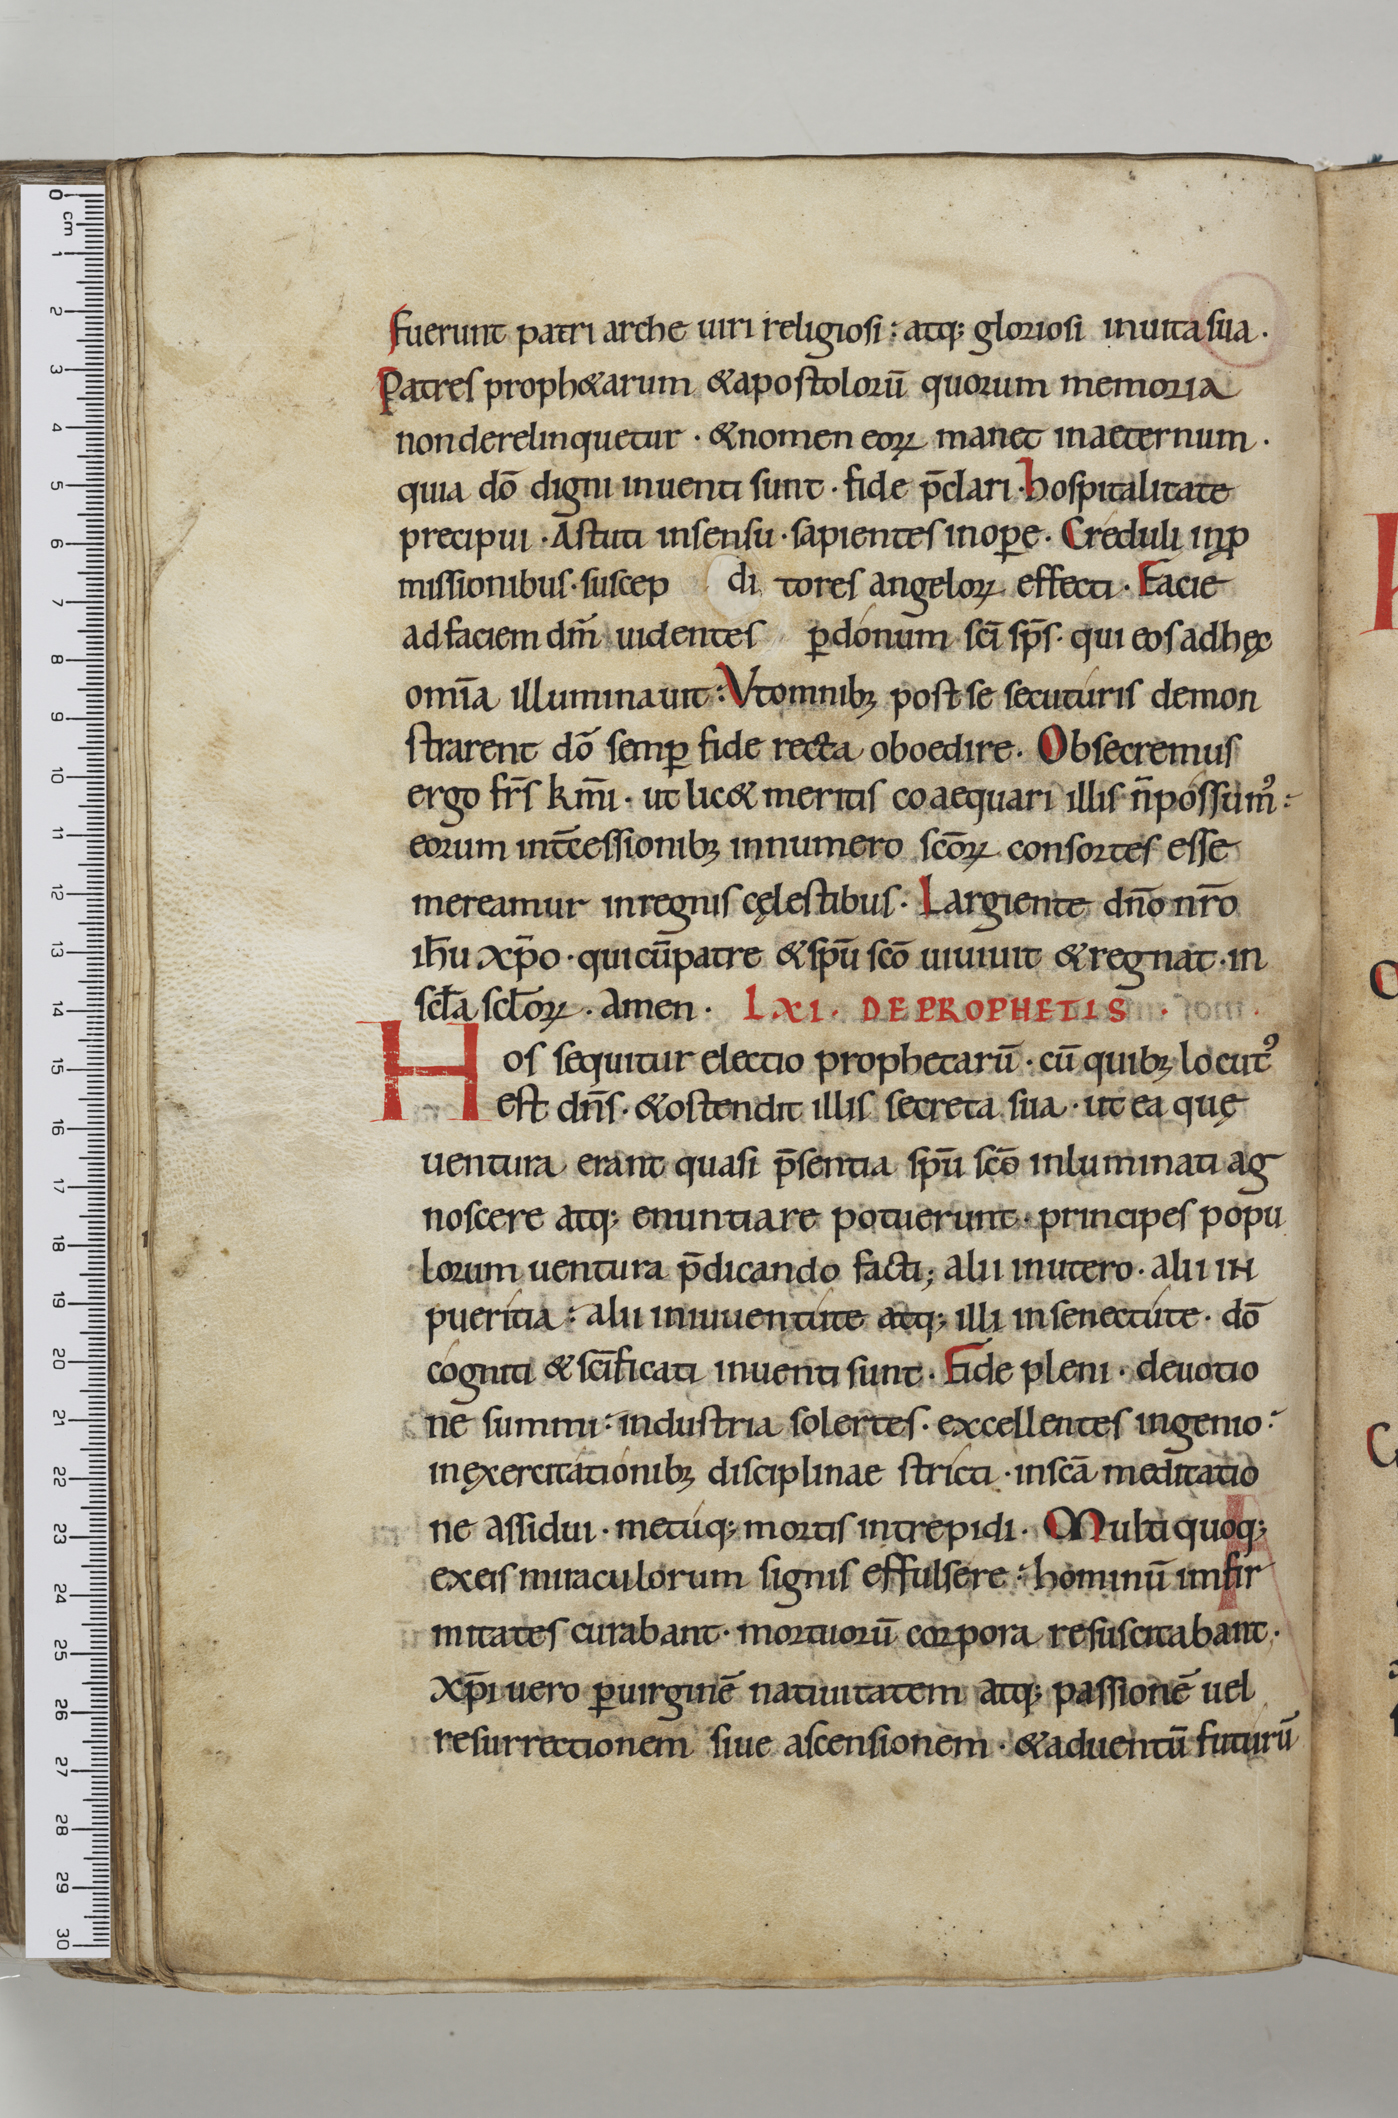 fuerunt patriarche uiri religiosi : atq; gloriosi in uita sua .
Patres proph&arum & apostolorū quorum memoria
non derelinquetur . & nomen eoꝝ manet in aeternum .
quia dō digni inuenti sunt . fide p̄clari . hospitalitate
precipui . Astuti in sensu . sapientes in oꝑe . Creduli in ꝓ
missionibus . suscep di tores angeloꝝ effecti . Facie
ad faciem dm̄ uidentes ꝑ donum sc̄i sp̄s . qui eos ad hęc
omīa illuminauit : Vt omnibꝫ post se secuturis demon
strarent dō semꝑ fide recta oboedire . Obsecremus
ergo fr̄s km̄i . ut lic& meritis coaequari illis n̄ possumꝰ :
eorum int̄cessionibꝫ in numero sc̄oꝝ consortes esse
mereamur in regnis cęlestibus . Largiente dn̄o nr̄o
ih̄u xp̄o . qui cū patre & sp̄u sc̄o uiuiuit & regnat . in
scl̄a scl̄oꝝ . Amen . LXI . DE PROPHETIS .
Hos sequitur electio prophetarū . cū quibꝫ locutꝰ
est dn̄s . & ostendit illis secreta sua . ut ea quę
uentura erant quasi p̄sentia sp̄u sc̄o inluminati ag
noscere atq; enuntiare potuerunt . principes popu
lorum uentura p̄dicando facti ; alii in utero . alii in
pueritia : alii in iuuentute atq; illi in senectute . dō
cogniti & sc̄ificati inuenti sunt . Fide pleni . deuotio
ne summi : industria solertes . excellentes ingenio :
in ęxercitationibꝫ disciplinae stricti . in sc̄a meditatio
ne assidui . metuq; mortis intrepidi . Multi quoq;
ex eis miraculorum signis effulsere : hominū imfir
mitates curabant . mortuorū corpora resuscitabant .
xp̄i uero ꝑ uirginē natiuitatem atq; passionē uel
resurrectionem siue ascensionem . & aduentū futurū